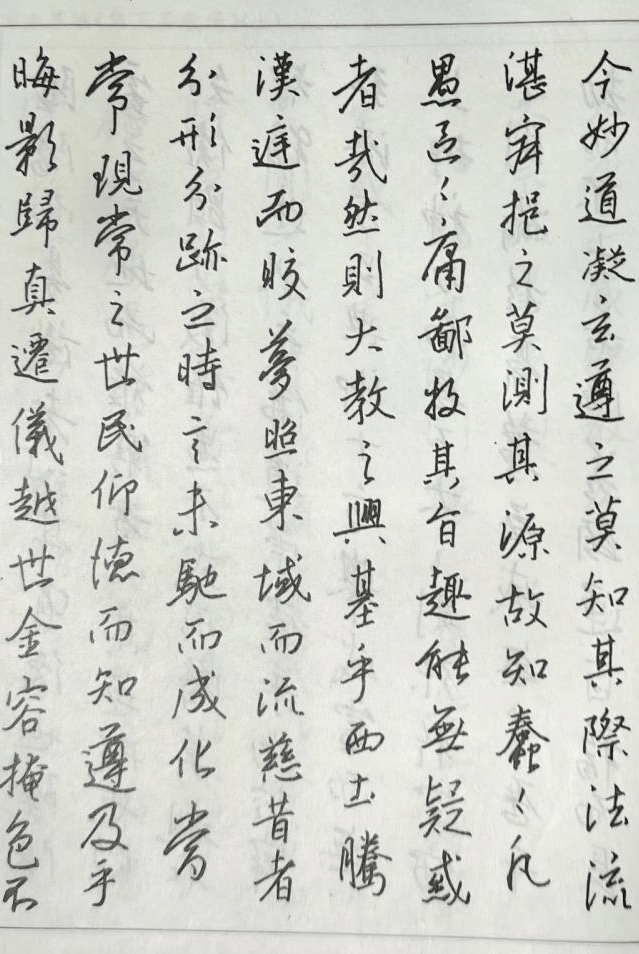 今妙道凝玄遵之莫知其際法流
湛寂挹之莫測其源故知蠢々凡
愚區々庸鄙投其旨趣能無疑惑
者哉然則大教之興基乎西土騰
漢庭而皎夢照東域而流慈昔者
分形分跡之時言未馳而成化當
常現常之世民仰德而知遵及乎
晦影歸真遷儀越世金容掩色不